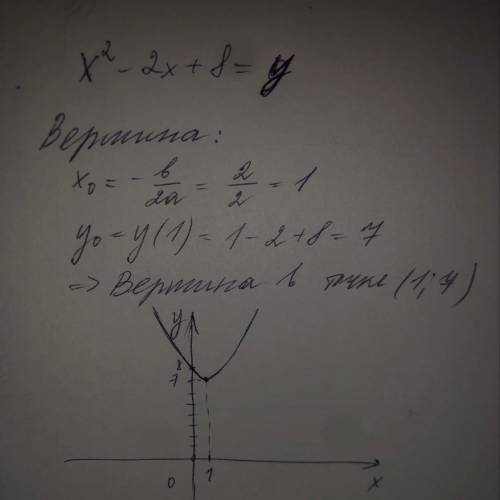 x² - 2x + 8 = y
Вершина:
x₀ = - b/2a = 2/2 = 1
y₀ = y(1) = 1 - 2 + 8 = 7
=> Вершина в точке (1; 7)
y
8
7
0 1 x